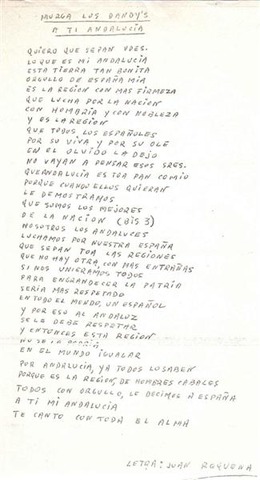 MURGA LOS DANDY'S
A TI ANDALUCÍA
QUIERO QUE SEPAN UDES.
LO QUE ES MI ANDALUCIA
ESTA TIERRA TAN BONITA
ORGULLO DE ESPAÑA MIA
ES LA REGION CON MAS FIRMEZA
QUE LUCHA POR LA NACION
CON HOMBRÍA Y CON NOBLEZA
Y ES LA REGION
QUE TODOS, LOS ESPAÑOLES
POR SU VIVA Y POR SU OLE
EN EL OLVIDO LA DEJO
NO VAYAN A PENSAR ESOS SRES.
QUE ANDALUCIA ES TOA PAN COMIO
PORQUE CUANDO ELLOS QUIERAN
LE DEMOSTRAMOS
QUE SOMOS LOS MEJORES
DE LA NACION (BIS 3)
NOSOTROS LOS ANDALUCES
LUCHAMOS POR NUESTRA ESPAÑA
QUE SEPAN TOA LAS REGIONES
QUE NO HAY OTRA, CON MAS ENTRAÑAS
SI NOS UNIERAMOS TODOS
PARA ENGRANDECER LA PATRIA
SERIA MAS RESPETADO
EN TODO EL MUNDO, UN ESPAÑOL
Y POR ESO AL ANDALUZ
SE LE DEBE RESPETAR
Y ENTONCES ESTA REGION
NO SE LA PODRIA
EN EL MUNDO IGUALAR
POR ANDALUCIA, YA TODOS LO SABEN
PORQUE ES LA REGION, DE HOMBRES CABALES
TODOS CON ORGULLO, LO DECIMOS A ESPAÑA
A TI MI ANDALUCIA
TE CANTO CON TODA EL ALMA
LETRA: JUAN REQUENA